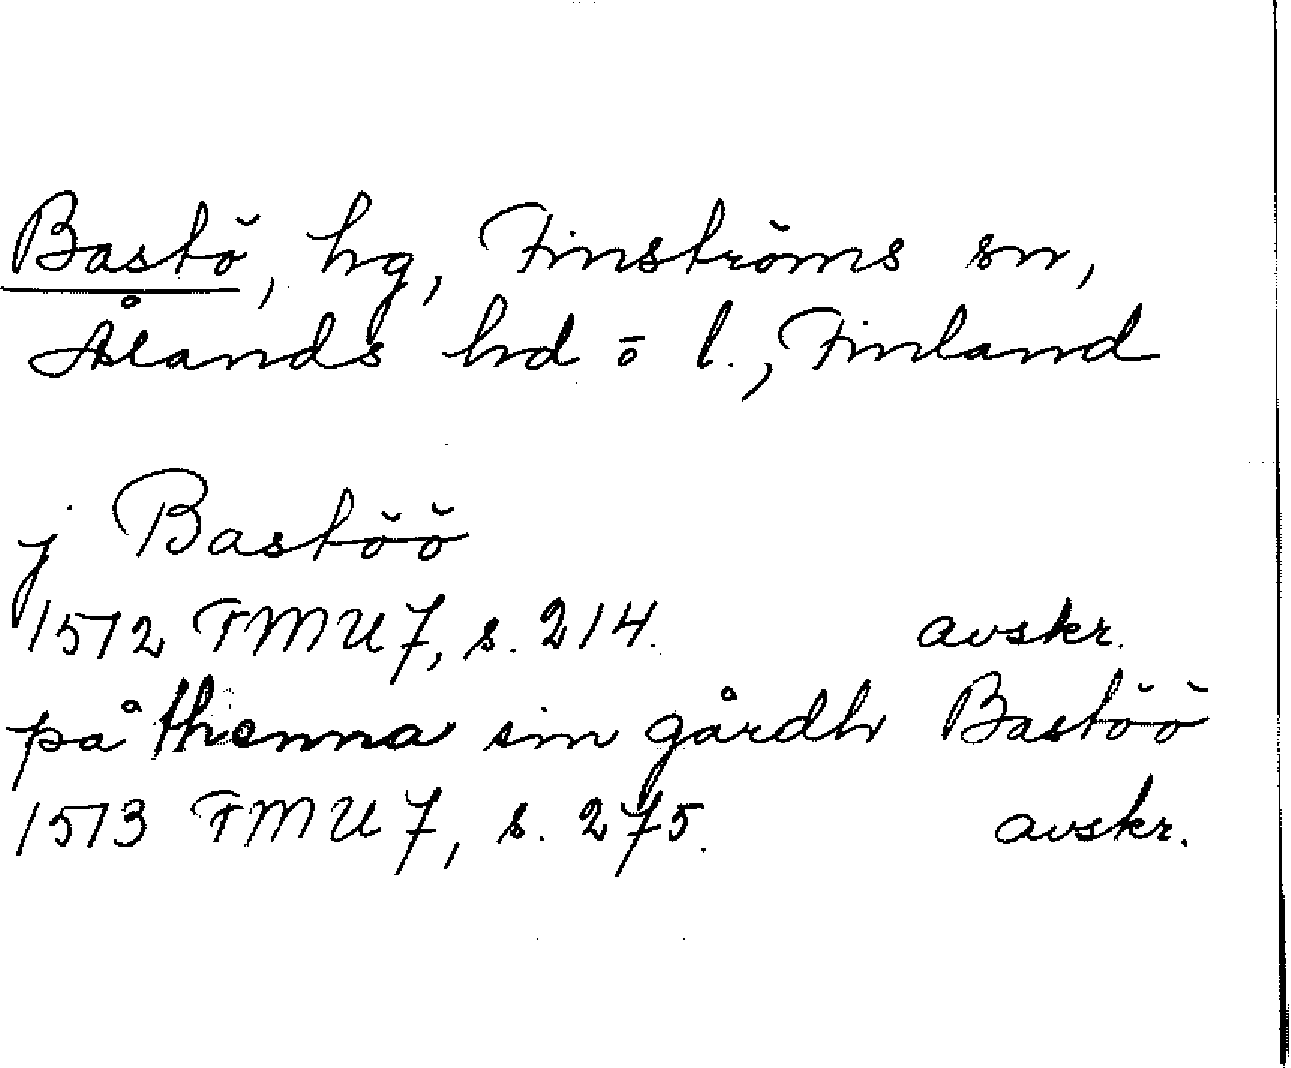 Bastö, hg, Finströms sn,
Ålands hd o l., Finland
j Bastöö
1572 FMU 7, s. 214. avskr.
på thenna sin gårdh Bastöö
1573 FMU 7, s. 275. avskr.